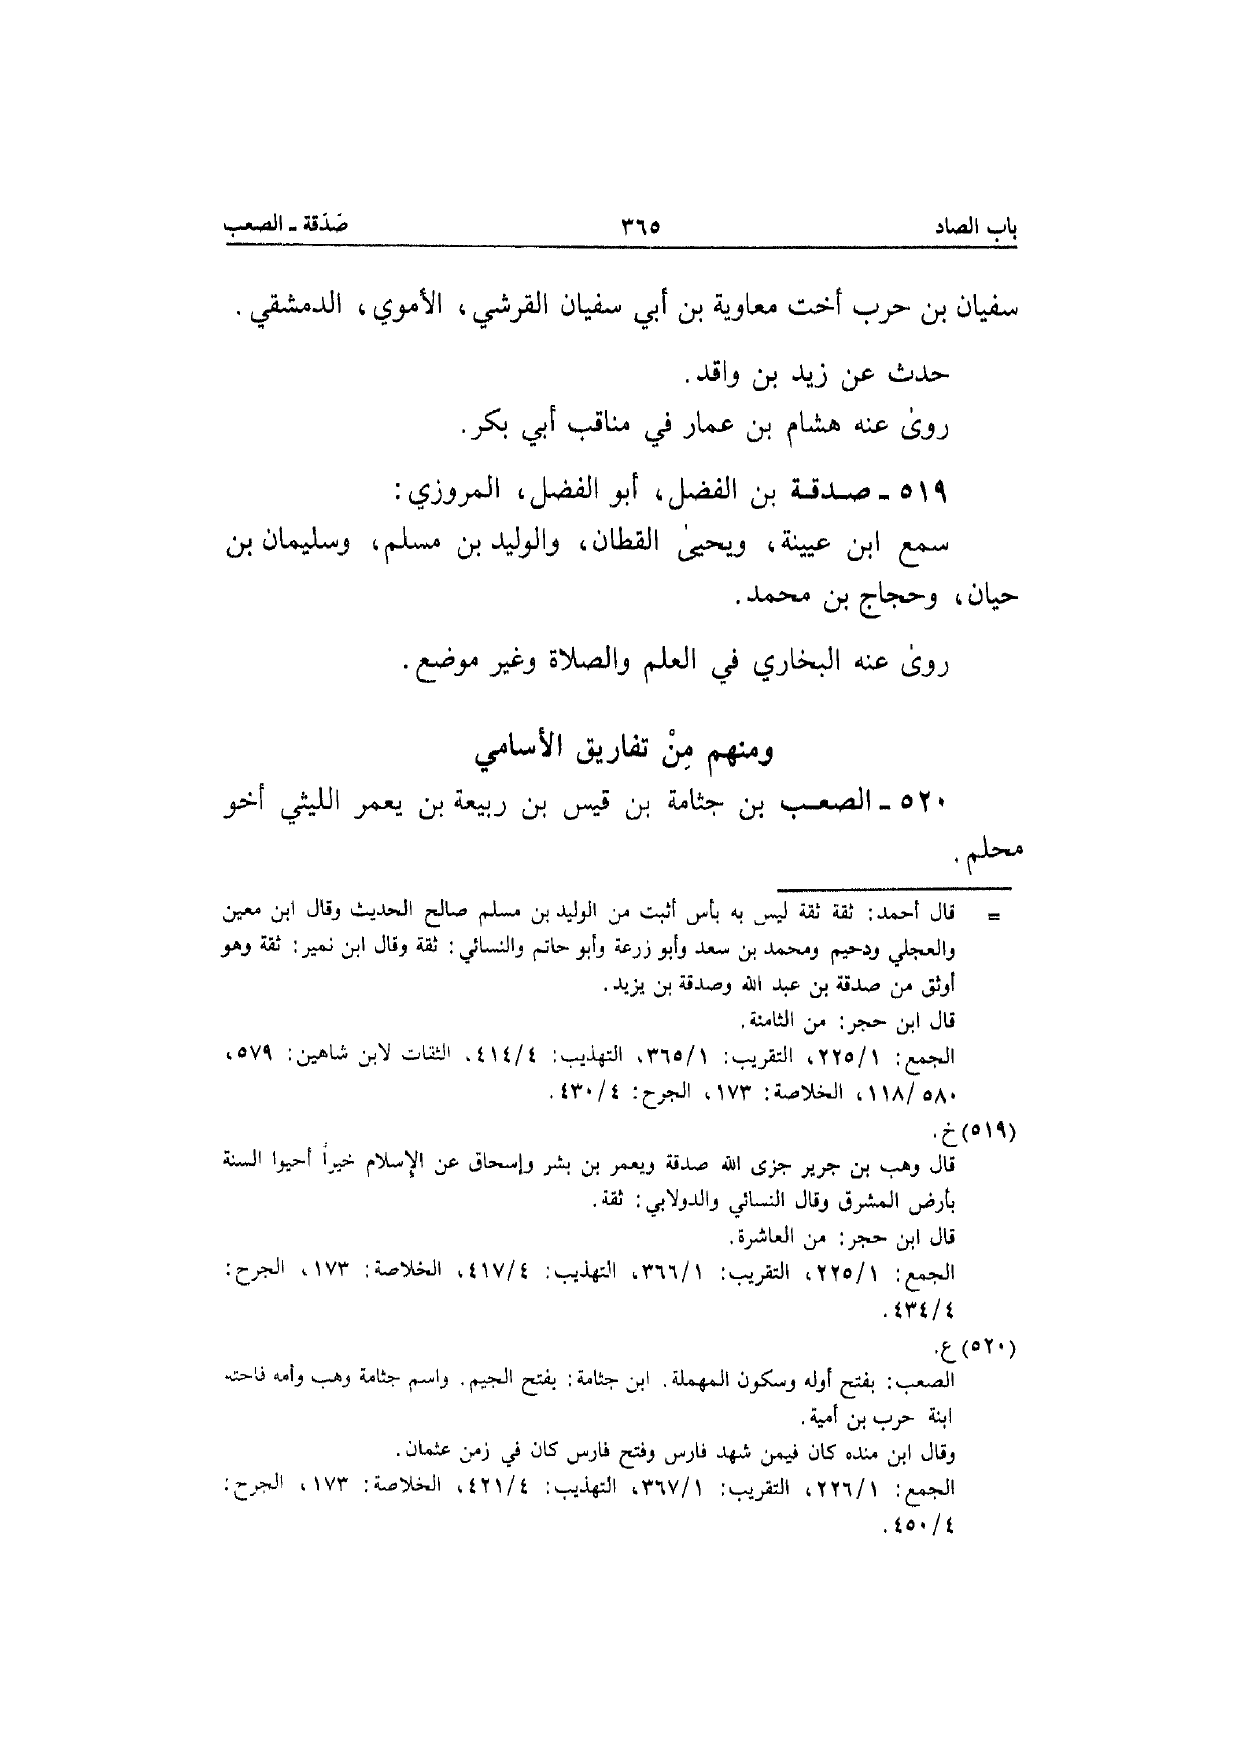 باب الصاد ٣٦٥ صَدَقة ـ الصعب
سفيان بن حرب أخت معاوية بن أبي سفيان القرشي، الأموي، الدمشقي.
حدث عن زيد بن واقد.
روىٰ عنه هشام بن عمار في مناقب أبي بكر.
٥١٩ ـ صدقة بن الفضل، أبو الفضل، المروزي:
سمع ابن عيينة، ويحيىٰ القطان، والوليد بن مسلم، وسليمان بن
حيان، وحجاج بن محمد.
روىٰ عنه البخاري في العلم والصلاة وغير موضع.
ومنهم مِنْ تفاريق الأسامي
٥٢٠ ـ الصعب بن جثامة بن قيس بن ربيعة بن يعمر الليثي أخو
محلم.
= قال أحمد: ثقة ثقة ليس به بأس أثبت من الوليد بن مسلم صالح الحديث وقال ابن معين
والعجلي ودحيم ومحمد بن سعد وأبو زرعة وأبو حاتم والنسائي: ثقة وقال ابن نمير: ثقة وهو
أوثق من صدقة بن عبد الله وصدقة بن يزيد.
قال ابن حجر: من الثامنة.
الجمع: ٢٢٥/١، التقريب: ٣٦٥/١، التهذيب: ٤١٤/٤، الثقات لابن شاهين: ٥٧٩،
١١٨/٥٨٠، الخلاصة: ١٧٣، الجرح: ٤٣٠/٤.
(٥١٩) خ.
قال وهب بن جرير جزى الله صدقة ويعمر بن بشر وإسحاق عن الإسلام خيراً أحيوا السنة
بأرض المشرق وقال النسائي والدولابي: ثقة.
قال ابن حجر: من العاشرة.
الجمع: ٢٢٥/١، التقريب: ٣٦٦/١، التهذيب: ٤١٧/٤، الخلاصة: ١٧٣، الجرح:
٤٣٤/٤.
(٥٢٠) ع.
الصعب: بفتح أوله وسكون المهملة. ابن جثامة: بفتح الجيم. واسم جثامة وهب وأمه فاخته
ابنة حرب بن أمية.
وقال ابن منده كان فيمن شهد فارس وفتح فارس كان في زمن عثمان.
الجمع: ٢٢٦/١، التقريب: ٣٦٧/١، التهذيب: ٤٢١/٤، الخلاصة: ١٧٣، الجرح:
٤٥٠/٤.